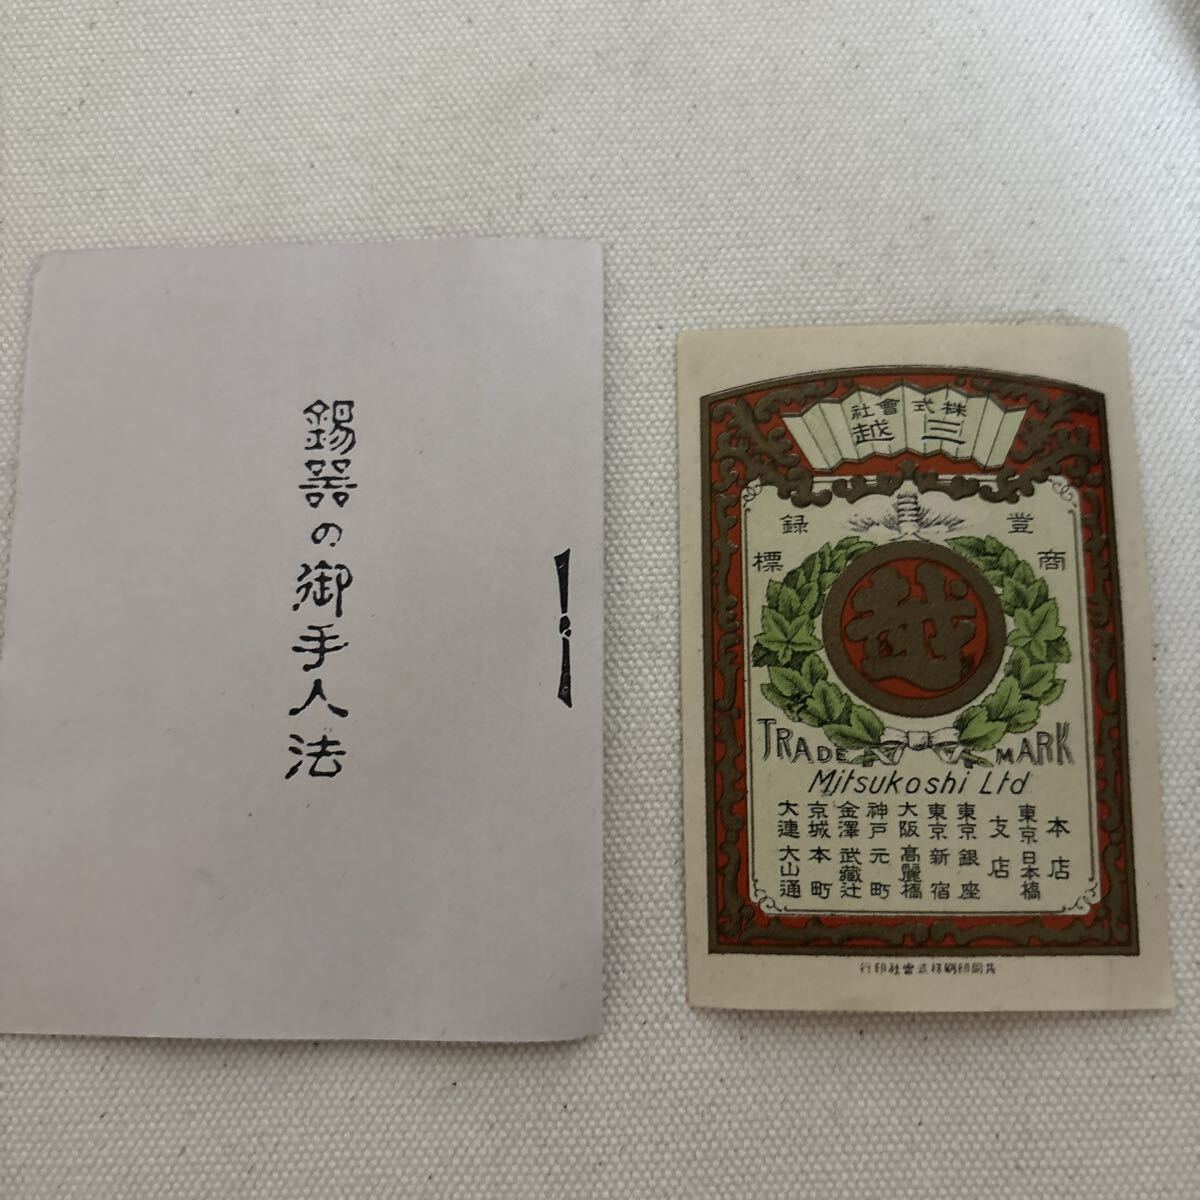 錫器の御手入法
株式會社
三越
登錄
商標
越
TRADE MARK
Mitsukoshi Ltd
本店
東京日本橋
支店
東京銀座
東京新宿
大阪高麗橋
神戸元町
金澤武藏辻
京城本町
大連大山通
共同印刷株式會社印行